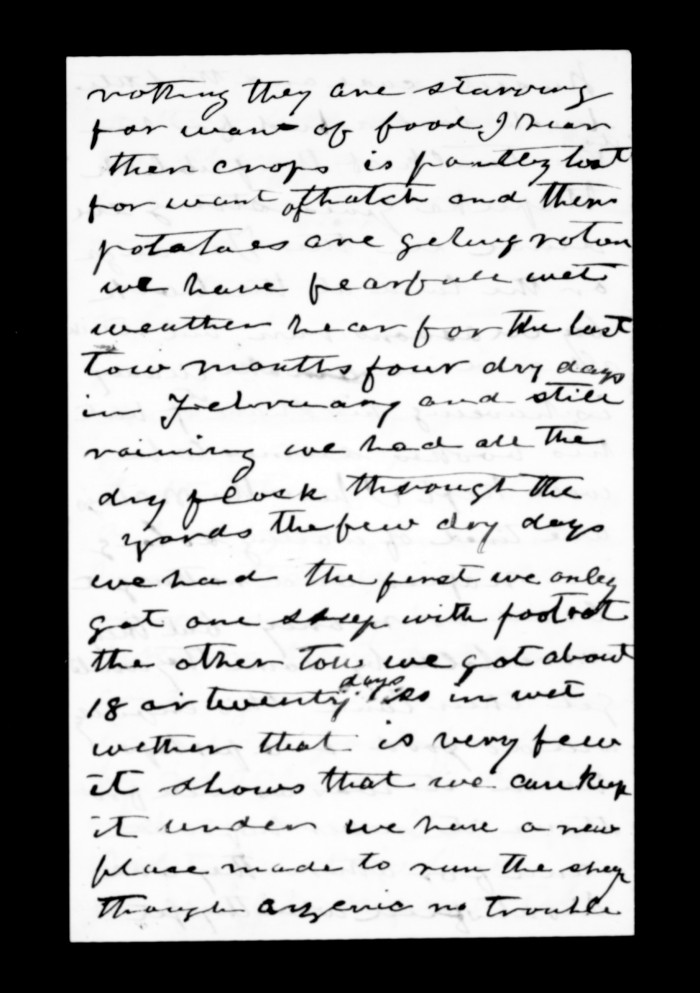 nothing they are starving
for want of food I hear
ther crops is partley lost
for want of thatch and thers
potatoes are geting roten
we have fearfull wet
weather hear for the last
tow months four dry days
in February and still
raining we had all the
dry flock through the
yards the few dry days
we had the first we onley
got one sheep with footrot
the other tow we got about
18 or twenty days in wet
wether that is very few
it shows that we can keep
it under we have a new
plase made to run the sheep
though arzenic no trouble